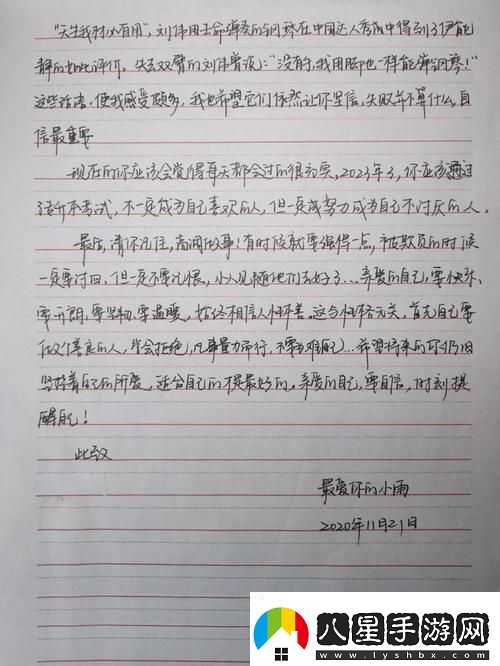 “天生我材必有用”,刘伟用生命弹奏的钢琴在中国达人秀成中得到了伊能
静的如此评价。失去双臂的刘伟曾说:“没有手,我用脚也一样能弹钢琴!”
这些话语,使我感受颇多,我也希望它们依然让你坚信,失败并不算什么,自
信最重要
现在的你应该会觉得每天都会过的很充实,2023年了,你应该通过
专升本考试,不一定成为自己喜欢的人,但一定成努力成为自己不讨厌的人。
最后,请你记住,高调做事!有时候就要强得一点,被欺负的时候
一定要讨回,但一定不要记恨,小人见随他们去好了...亲爱的自己,要快乐、
要开朗、要坚韧、要温暖,始终相信人性本善。这与性格无关,首先自己要
做个善良的人,学会拒绝,凡事量力而行,不要为难自己...希望将来的你仍旧
坚持着自己的所爱,适合自己的才是最好的。亲爱的自己,要自信,时刻提
醒自己!
此致
最爱你的小雨
2020年11月21日
八星手游网
www.lyshbx.com